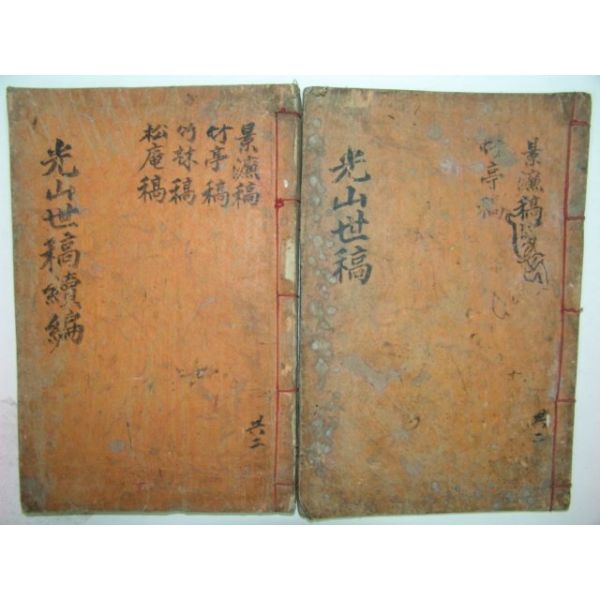 光山世稿
景濂稿
竹亭稿
共二
光山世稿續編
景濂稿
竹亭稿
竹林稿
松庵稿
共二